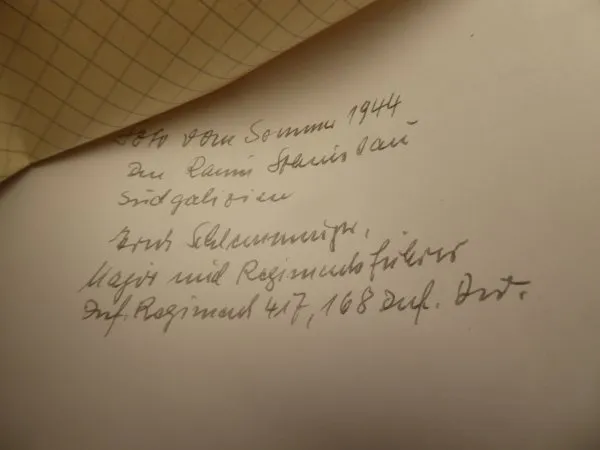 Foto vom Sommer 1944
Im Raum Stanislau
Südgalizien
Erich
Major und Regimentsführer
Inf. Regiment 417, 168 Inf. Div.